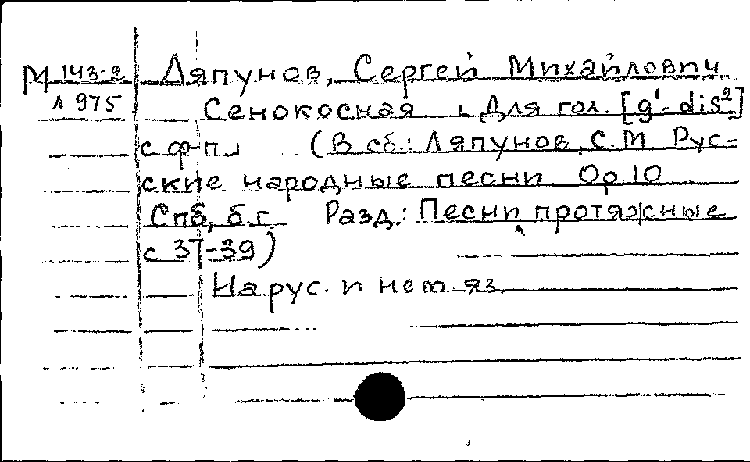 М 143-2 Ляпунов, Сергей Михайлович
Л 975 Сенокосная. Для гол. [g¹-dis²]
с ф-п. (В сб.: Ляпунов, С. М. Рус-
ские народные песни. Op. 10
Спб, б.г. Разд.: Песни протяжные
с 37-39)
На рус. и нем яз.